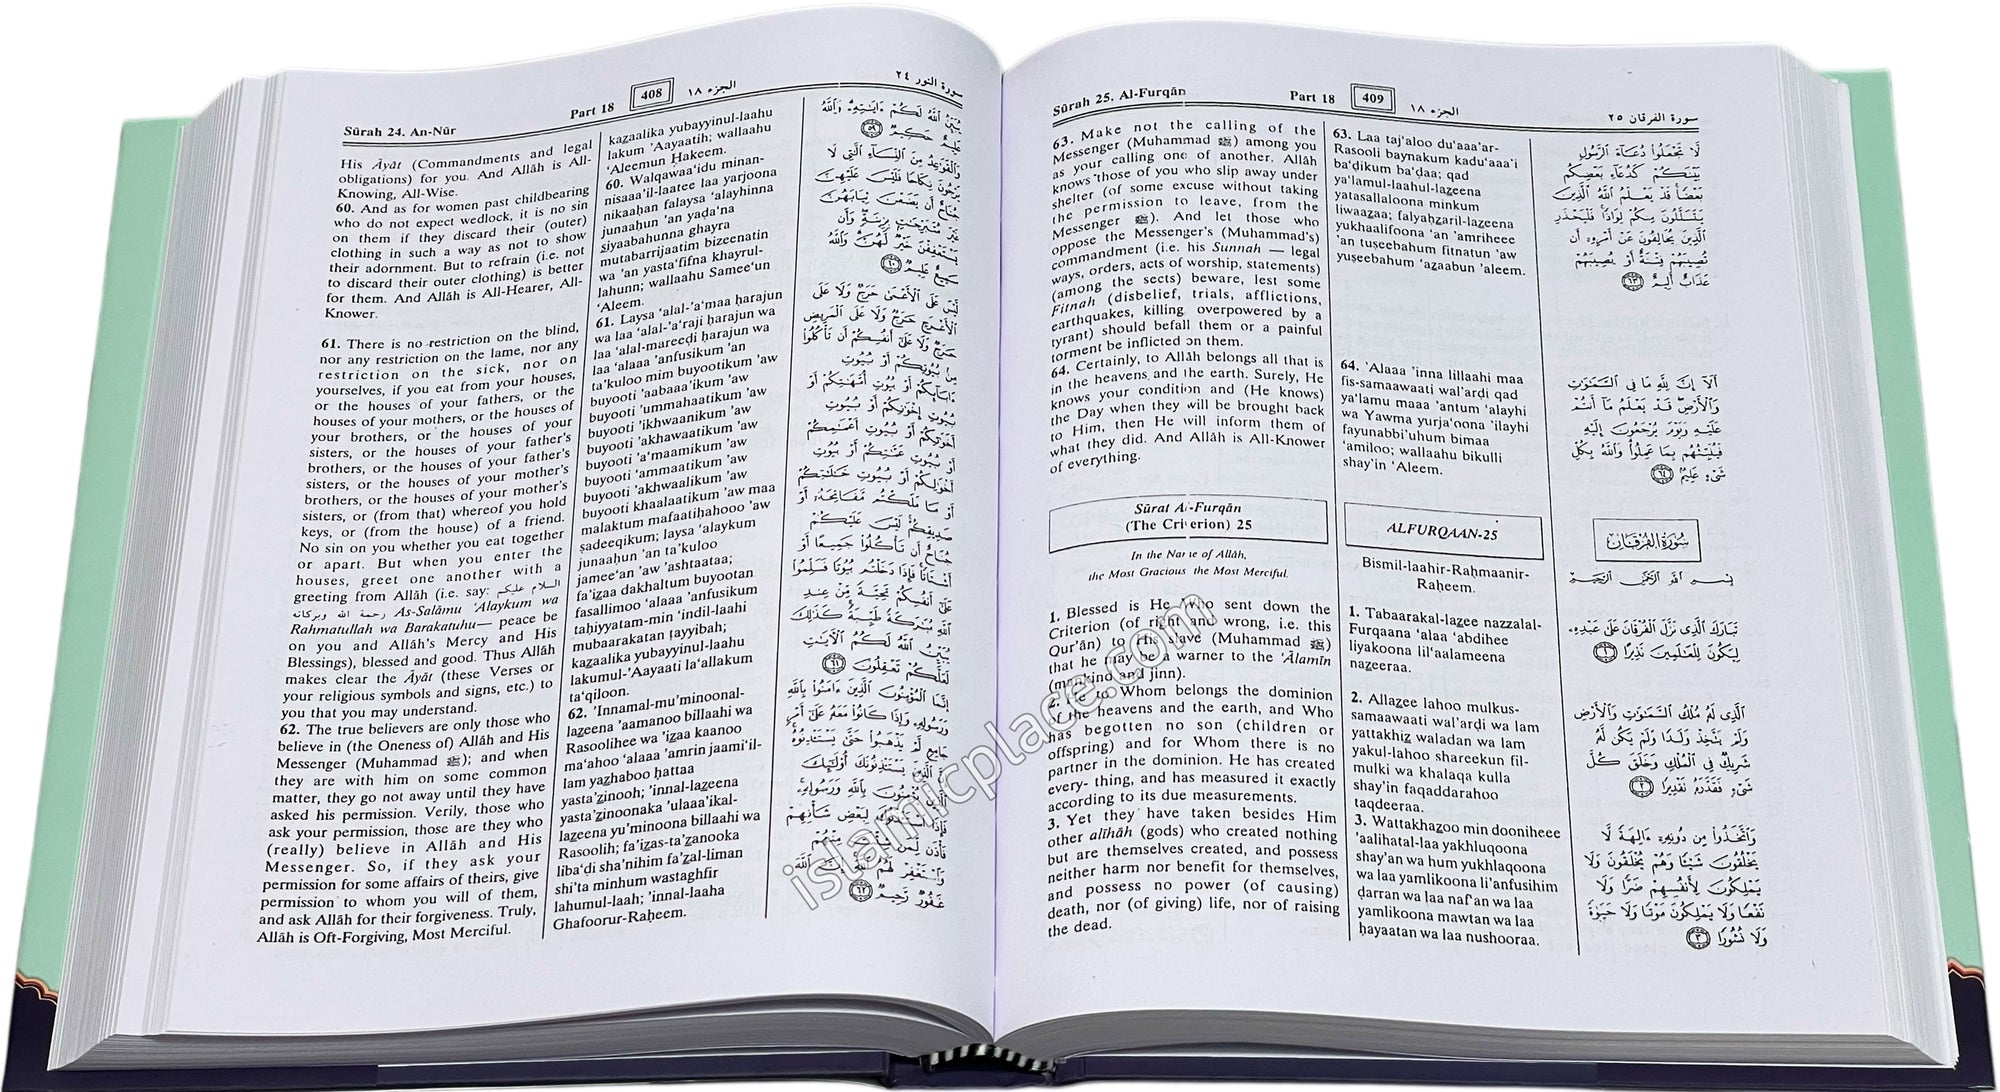 Sūrah 24. An-Nūr
Part 18
408
الجزء ١٨
سورة النور ٢٤
His Āyāt (Commandments and legal
obligations) for you. And Allāh is All-
Knowing, All-Wise.
60. And as for women past childbearing
who do not expect wedlock, it is no sin
on them if they discard their (outer)
clothing in such a way as not to show
their adornment. But to refrain (i.e. not
to discard their outer clothing) is better
for them. And Allāh is All-Hearer, All-
Knower.
61. There is no restriction on the blind,
nor any restriction on the lame, nor any
restriction on the sick, nor on
yourselves, if you eat from your houses,
or the houses of your fathers, or the
houses of your mothers, or the houses of
your brothers, or the houses of your
sisters, or the houses of your father's
brothers, or the houses of your father's
sisters, or the houses of your mother's
brothers, or the houses of your mother's
sisters, or (from that) whereof you hold
keys, or (from the house) of a friend.
No sin on you whether you eat together
or apart. But when you enter the
houses, greet one another with a
greeting from Allāh (i.e. say: السلام عليكم
ورحمة الله وبركاته As-Salāmu ‘Alaykum wa
Rahmatullah wa Barakatuhu— peace be
on you and Allāh's Mercy and His
Blessings), blessed and good. Thus Allāh
makes clear the Āyāt (these Verses or
your religious symbols and signs, etc.) to
you that you may understand.
62. The true believers are only those who
believe in (the Oneness of) Allāh and His
Messenger (Muhammad ﷺ); and when
they are with him on some common
matter, they go not away until they have
asked his permission. Verily, those who
ask your permission, those are they who
(really) believe in Allāh and His
Messenger. So, if they ask your
permission for some affairs of theirs, give
permission to whom you will of them,
and ask Allāh for their forgiveness. Truly,
Allāh is Oft-Forgiving, Most Merciful.
kazaalika yubayyinul-laahu
lakum 'Aayaatih; wallaahu
‘Aleemun Ḥakeem.
60. Walqawaa‘idu minan-
nisaaa'il-laatee laa yarjoona
nikaaḥan falaysa ‘alayhinna
junaaḥun 'an yaḍa‘na
siyaabahunna ghayra
mutabarrijaatim bizeenatin
wa 'an yasta‘fifna khayrul-
lahunn; wallaahu Samee‘un
‘Aleem.
61. Laysa ‘alal-'a‘maa ḥarajun
wa laa ‘alal-'a‘raji ḥarajun wa
laa ‘alal-mareeḍi ḥarajun wa
laa ‘alaaa 'anfusikum 'an
ta'kuloo mim buyootikum 'aw
buyooti 'aabaaa'ikum 'aw
buyooti 'ummahaatikum 'aw
buyooti 'ikhwaanikum 'aw
buyooti 'akhawaatikum 'aw
buyooti 'a‘maamikum 'aw
buyooti ‘ammaatikum 'aw
buyooti 'akhwaalikum 'aw
buyooti khaalaatikum 'aw maa
malaktum mafaatiḥahooo 'aw
ṣadeeqikum; laysa ‘alaykum
junaaḥun 'an ta'kuloo
jamee‘an 'aw 'ashtaataa;
fa'izaa dakhaltum buyootan
fasallimoo ‘alaaa 'anfusikum
taḥiyyatam-min ‘indil-laahi
mubaarakatan ṭayyibah;
kazaalika yubayyinul-laahu
lakumul-'Aayaati la‘allakum
ta‘qiloon.
62. 'Innamal-mu'minoonal-
lazeena 'aamanoo billaahi wa
Rasoolihee wa 'izaa kaanoo
ma‘ahoo ‘alaaa 'amrin jaami‘il-
lam yazhaboo ḥattaa
yasta'zinooh; 'innal-lazeena
yasta'zinoonaka 'ulaaa'ikal-
lazeena yu'minoona billaahi wa
Rasoolih; fa'izas-ta'zanooka
liba‘ḍi sha'nihim fa'zal-liman
shi'ta minhum wastaghfir
lahumul-laah; 'innal-laaha
Ghafoorur-Raḥeem.
يُبَيِّنُ ٱللَّهُ لَكُمْ ءَايَـٰتِهِۦ وَٱللَّهُ
عَلِيمٌ حَكِيمٌ ٥٩
وَٱلْقَوَٰعِدُ مِنَ ٱلنِّسَآءِ ٱلَّـٰتِى لَا
يَرْجُونَ نِكَاحًا فَلَيْسَ عَلَيْهِنَّ
جُنَاحٌ أَن يَضَعْنَ ثِيَابَهُنَّ
غَيْرَ مُتَبَرِّجَـٰتٍۭ بِزِينَةٍ وَأَن
يَسْتَعْفِفْنَ خَيْرٌ لَّهُنَّ وَٱللَّهُ
سَمِيعٌ عَلِيمٌ ٦٠
لَّيْسَ عَلَى ٱلْأَعْمَىٰ حَرَجٌ وَلَا عَلَى
ٱلْأَعْرَجِ حَرَجٌ وَلَا عَلَى ٱلْمَرِيضِ
حَرَجٌ وَلَا عَلَىٰٓ أَنفُسِكُمْ أَن تَأْكُلُوا۟
مِنۢ بُيُوتِكُمْ أَوْ بُيُوتِ
ءَابَآئِكُمْ أَوْ بُيُوتِ أُمَّهَـٰتِكُمْ أَوْ
بُيُوتِ إِخْوَٰنِكُمْ أَوْ بُيُوتِ
أَخَوَٰتِكُمْ أَوْ بُيُوتِ أَعْمَـٰمِكُمْ
أَوْ بُيُوتِ عَمَّـٰتِكُمْ أَوْ بُيُوتِ
أَخْوَٰلِكُمْ أَوْ بُيُوتِ خَـٰلَـٰتِكُمْ
أَوْ مَا مَلَكْتُم مَّفَاتِحَهُۥٓ أَوْ
صَدِيقِكُمْ لَيْسَ عَلَيْكُمْ
جُنَاحٌ أَن تَأْكُلُوا۟ جَمِيعًا أَوْ
أَشْتَاتًا فَإِذَا دَخَلْتُم بُيُوتًا فَسَلِّمُوا۟
عَلَىٰٓ أَنفُسِكُمْ تَحِيَّةً مِّنْ عِندِ
ٱللَّهِ مُبَـٰرَكَةً طَيِّبَةً كَذَٰلِكَ
يُبَيِّنُ ٱللَّهُ لَكُمُ ٱلْـَٔايَـٰتِ
لَعَلَّكُمْ تَعْقِلُونَ ٦١
إِنَّمَا ٱلْمُؤْمِنُونَ ٱلَّذِينَ ءَامَنُوا۟ بِٱللَّهِ
وَرَسُولِهِۦ وَإِذَا كَانُوا۟ مَعَهُۥ عَلَىٰٓ أَمْرٍ
جَامِعٍ لَّمْ يَذْهَبُوا۟ حَتَّىٰ يَسْتَـْٔذِنُوهُ
إِنَّ ٱلَّذِينَ يَسْتَـْٔذِنُونَكَ أُو۟لَـٰٓئِكَ
ٱلَّذِينَ يُؤْمِنُونَ بِٱللَّهِ وَرَسُولِهِۦ
فَإِذَا ٱسْتَـْٔذَنُوكَ لِبَعْضِ شَأْنِهِمْ
فَأْذَن لِّمَن شِئْتَ مِنْهُمْ
وَٱسْتَغْفِرْ لَهُمُ ٱللَّهَ إِنَّ ٱللَّهَ
غَفُورٌ رَّحِيمٌ ٦٢
Sūrah 25. Al-Furqān
Part 18
409
الجزء ١٨
سورة الفرقان ٢٥
63. Make not the calling of the
Messenger (Muhammad ﷺ) among you
as your calling one of another. Allāh
knows those of you who slip away under
shelter (of some excuse without taking
the permission to leave, from the
Messenger ﷺ). And let those who
oppose the Messenger's (Muhammad's)
commandment (i.e. his Sunnah — legal
ways, orders, acts of worship, statements)
(among the sects) beware, lest some
Fitnah (disbelief, trials, afflictions,
earthquakes, killing, overpowered by a
tyrant) should befall them or a painful
torment be inflicted on them.
64. Certainly, to Allāh belongs all that is
in the heavens and the earth. Surely, He
knows your condition and (He knows)
the Day when they will be brought back
to Him, then He will inform them of
what they did. And Allāh is All-Knower
of everything.
Sūrat Al-Furqān
(The Criterion) 25
In the Name of Allāh,
the Most Gracious, the Most Merciful.
1. Blessed is He Who sent down the
Criterion (of right and wrong, i.e. this
Qur'ān) to His slave (Muhammad ﷺ)
that he may be a warner to the ‘Ālamīn
(mankind and jinn).
2. He to Whom belongs the dominion
of the heavens and the earth, and Who
has begotten no son (children or
offspring) and for Whom there is no
partner in the dominion. He has created
every- thing, and has measured it exactly
according to its due measurements.
3. Yet they have taken besides Him
other alīhāh (gods) who created nothing
but are themselves created, and possess
neither harm nor benefit for themselves,
and possess no power (of causing)
death, nor (of giving) life, nor of raising
the dead.
63. Laa taj‘aloo du‘aaa'ar-
Rasooli baynakum kadu‘aaa'i
ba‘ḍikum ba‘ḍaa; qad
ya‘lamul-laahul-lazeena
yatasallaloona minkum
liwaazaa; falyaḥzaril-lazeena
yukhaalifoona ‘an 'amriheee
'an tuṣeebahum fitnatun 'aw
yuṣeebahum ‘azaabun 'aleem.
64. 'Alaaa 'inna lillaahi maa
fis-samaawaati wal'arḍi qad
ya‘lamu maaa 'antum ‘alayhi
wa Yawma yurja‘oona 'ilayhi
fayunabbi'uhum bimaa
‘amiloo; wallaahu bikulli
shay'in ‘Aleem.
ALFURQAAN-25
Bismil-laahir-Raḥmaanir-
Raḥeem.
1. Tabaarakal-lazee nazzalal-
Furqaana ‘alaa ‘abdihee
liyakoona lil‘aalameena
nazeeraa.
2. Allazee lahoo mulkus-
samaawaati wal'arḍi wa lam
yattakhiz waladan wa lam
yakul-lahoo shareekun fil-
mulki wa khalaqa kulla
shay'in faqaddarahoo
taqdeeraa.
3. Wattakhazoo min dooniheee
'aalihatal-laa yakhluqoona
shay'an wa hum yukhlaqoona
wa laa yamlikoona li'anfusihim
ḍarran wa laa naf‘an wa laa
yamlikoona mawtan wa laa
ḥayaatan wa laa nushooraa.
لَّا تَجْعَلُوا۟ دُعَآءَ ٱلرَّسُولِ
بَيْنَكُمْ كَدُعَآءِ بَعْضِكُم
بَعْضًا قَدْ يَعْلَمُ ٱللَّهُ ٱلَّذِينَ
يَتَسَلَّلُونَ مِنكُمْ لِوَاذًا فَلْيَحْذَرِ
ٱلَّذِينَ يُخَالِفُونَ عَنْ أَمْرِهِۦٓ أَن
تُصِيبَهُمْ فِتْنَةٌ أَوْ يُصِيبَهُمْ
عَذَابٌ أَلِيمٌ ٦٣
أَلَآ إِنَّ لِلَّهِ مَا فِى ٱلسَّمَـٰوَٰتِ
وَٱلْأَرْضِ قَدْ يَعْلَمُ مَآ أَنتُمْ
عَلَيْهِ وَيَوْمَ يُرْجَعُونَ إِلَيْهِ
فَيُنَبِّئُهُم بِمَا عَمِلُوا۟ وَٱللَّهُ بِكُلِّ
شَىْءٍ عَلِيمٌۢ ٦٤
سُورَةُ الفُرْقَانِ
بِسْمِ ٱللَّهِ ٱلرَّحْمَـٰنِ ٱلرَّحِيمِ
تَبَارَكَ ٱلَّذِى نَزَّلَ ٱلْفُرْقَانَ عَلَىٰ عَبْدِهِۦ
لِيَكُونَ لِلْعَـٰلَمِينَ نَذِيرًا ١
ٱلَّذِى لَهُۥ مُلْكُ ٱلسَّمَـٰوَٰتِ وَٱلْأَرْضِ
وَلَمْ يَتَّخِذْ وَلَدًا وَلَمْ يَكُن لَّهُۥ
شَرِيكٌ فِى ٱلْمُلْكِ وَخَلَقَ كُلَّ
شَىْءٍ فَقَدَّرَهُۥ تَقْدِيرًا ٢
وَٱتَّخَذُوا۟ مِن دُونِهِۦٓ ءَالِهَةً لَّا
يَخْلُقُونَ شَيْـًٔا وَهُمْ يُخْلَقُونَ وَلَا
يَمْلِكُونَ لِأَنفُسِهِمْ ضَرًّا وَلَا
نَفْعًا وَلَا يَمْلِكُونَ مَوْتًا وَلَا حَيَوٰةً
وَلَا نُشُورًا ٣
islamicplace.com